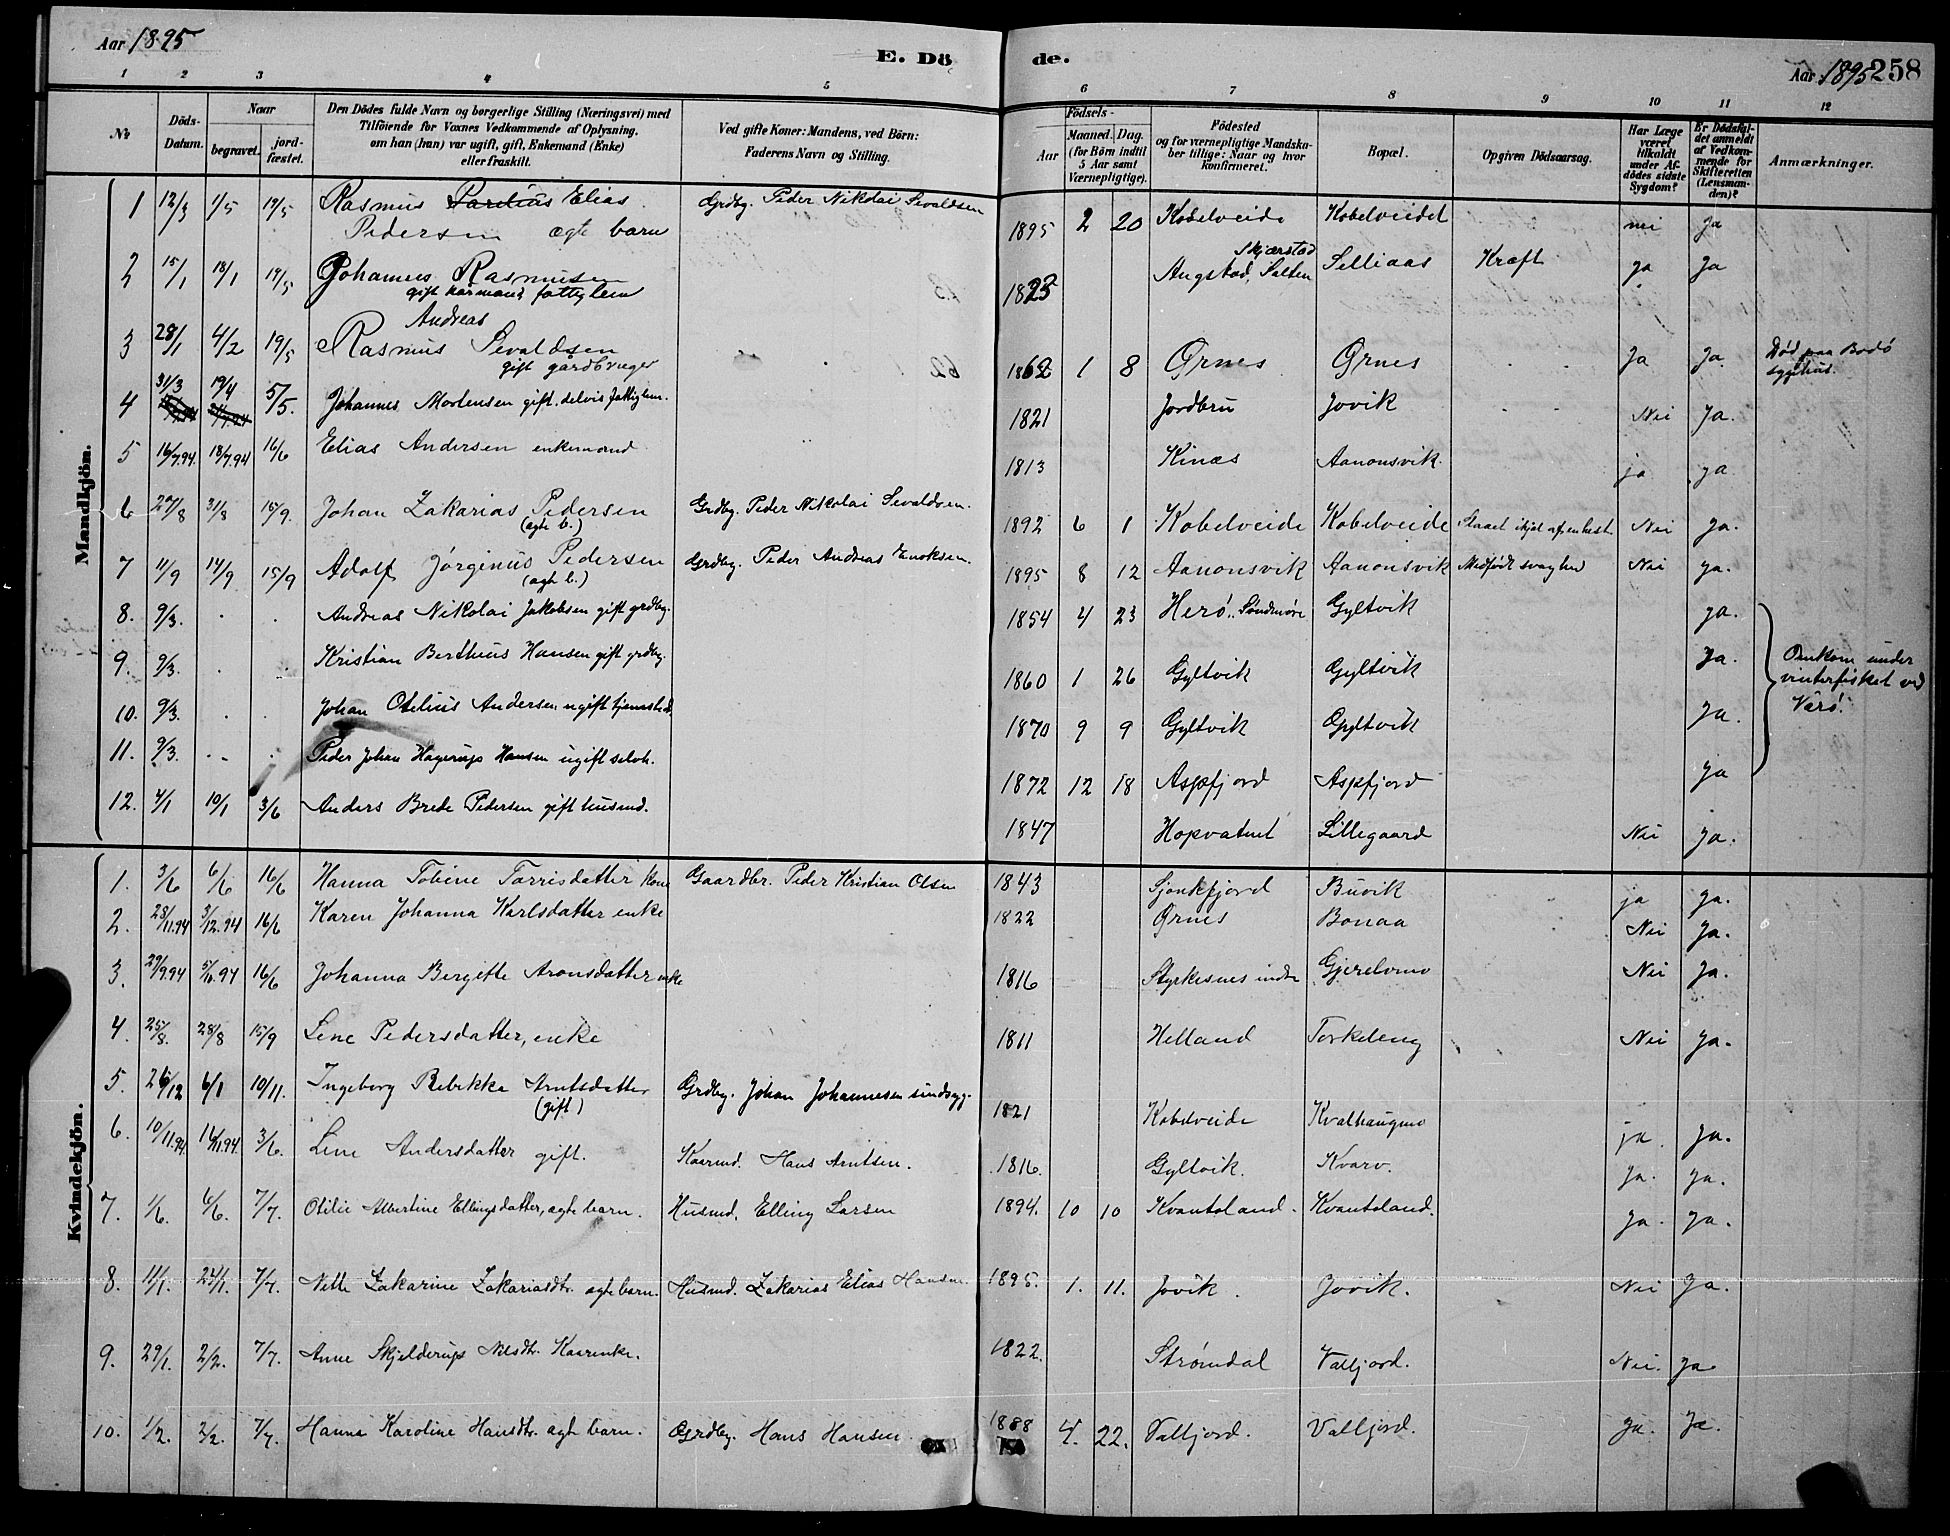 Aar 1895 E. Dö de. Aar 1895 258
1 2 3 4 5 6 7 8 9 10 11 12
No
Döds-
Datum.
Naar
begravet.
jord-
fæstet.
Den Dödes fulde Navn og borgerlige Stilling (Næringsvei) med
Tilföiende for Voxnes Vedkommende af Oplysning,
om han (hun) var ugift, gift, Enkemand (Enke)
eller fraskilt.
Ved gifte Koner: Mandens, ved Börn:
Faderens Navn og Stilling.
Födsels-
Aar
Maaned. Dag.
(for Börn indtil
5 Aar samt
Værnepligtige).
Födested
og for værnepligtige Mandska-
ber tillige: Naar og hvor
konfirmeret.
Bopæl.
Opgiven Dödsaarsag.
Har Læge
været
tilkaldt
under Af-
dödes sidste
Sygdom?
Er Dödsfal-
det anmeldt
af Vedkom-
mende for
Skifteretten
(Lensman-
den)?
Anmærkninger.
Mandkjön.
1 12/3 1/5 19/5 Rasmus Elias Grdbg. Peder Nikolai Sevaldsen 1895 2 20 Kobelveide Kobelveidet nei Ja
Pedersen ægte barn
2 15/1 18/1 19/5 Johannes Rasmusen 1823 Angstad, Skjærstad Salten Selliaas Kræft ja Ja
gift fattiglem
Andreas
3 28/1 4/2 19/5 Rasmus Sevaldsen 1862 1 8 Ørnes Ørnes Ja Ja. Død paa Bodø
gift gårdbruger sygehus.
4 31/3 19/4 5/5. Johannes Mortensen gift. delvis fattiglem. 1821 Jordbru Jovik Nei Ja.
5 16/7.94. 18/7.94 16/6 Elias Andersen enkemand 1813 Kinæs Aanonsvik. ja ja
6 29/8 31/8 15/9. Johan Zakarias Pedersen Grdbg. Peder Nikolai Sevaldsen. 1892 6 1 Kobelveide Kobelveide Slaaet ihjel af en hest Nei ja.
(ægte b.)
7 11/9 14/9 15/9 Adolf Jørginus Pedersen Grdbg. Peder Andreas Enoksen. 1895 8 12 Aanonsvik Aanonsvik Medfødt svaghed Nei ja.
(ægte b.)
8. 9/3. Andreas Nikolai Jakobsen gift grdbg. 1854 4 23 Herø, Søndmøre Gyltvik ja.
9. 9/3. Kristian Berthius Hansen gift grdbg. 1860 1 26 Gyltvik Gyltvik Ja. Omkom under
vinterfisket ved
Værø.
10. 9/3. Johan Otelius Andersen ugift 1870 9 9 Gyltvik Gyltvik Ja.
11. 9/3. Peder Johan Hagerup Hansen ugift selvh. 1872 12 18 Aspfjord Aspfjord ja
12. 4/1 10/1 3/6 Anders Brede Pedersen gift husmd. 1847 Hopvatnet Lillegaard Nei ja.
Kvindekjön.
1. 3/6 6/6 16/6 Hanna Tobine Torrisdatter kone Gaardbr. Peder Kristian Olsen 1843 Sjonkfjord Buvik ja ja.
2. 28/11.94 3/12.94 16/6 Karen Johanna Karlsdatter enke 1822 Ørnes Bonaa Nei Ja.
3. 29/9.94 5/10.94 16/6 Johanna Bergitte Aronsdatter enke 1816 Styrkesnes indre Gjerelvmo Nei Ja.
4. 25/8. 28/8 15/9 Lene Pedersdatter, enke 1811 Helland Torkeleng Nei Ja.
5. 26/12 6/1 10/11. Ingeborg Rebikke Arntsdatter Grdbg. Johan Johannesen sindssyg. 1821 Kobelveide Kvalhaugmo ja. Ja.
(gift)
6. 10/11.94. 16/11.94. 3/6. Lene Andersdatter gift. Kaarmd. Hans Arntsen. 1816. Gyltvik. Kvarv. Ja. Ja.
7. 1/6. 6/6. 7/7. Otilie Albertine Ellingsdatter, ægte barn. Husmd. Elling Larsen 1894. 10 10 Kvantoland. Kvantoland. Ja. Ja.
8. 11/1. 24/1. 7/7. Nette Zakarine Zakariasdtr. ægte barn. Husmd. Zakarias Elias Hansen. 1895. 1. 11. Jovik. Jovik. Nei Ja.
9. 29/1. 2/2. 7/7. Anne Skjelderup Nilsdtr. Kaarenke. 1822. Strømdal Valljord. Nei. Ja
10. 1/2. 2/2. 7/7. Hanna Karoline Hansdtr. ægte barn. Grdbg. Hans Hansen 1888 4. 22. Valljord. Valljord. Ja. Ja.